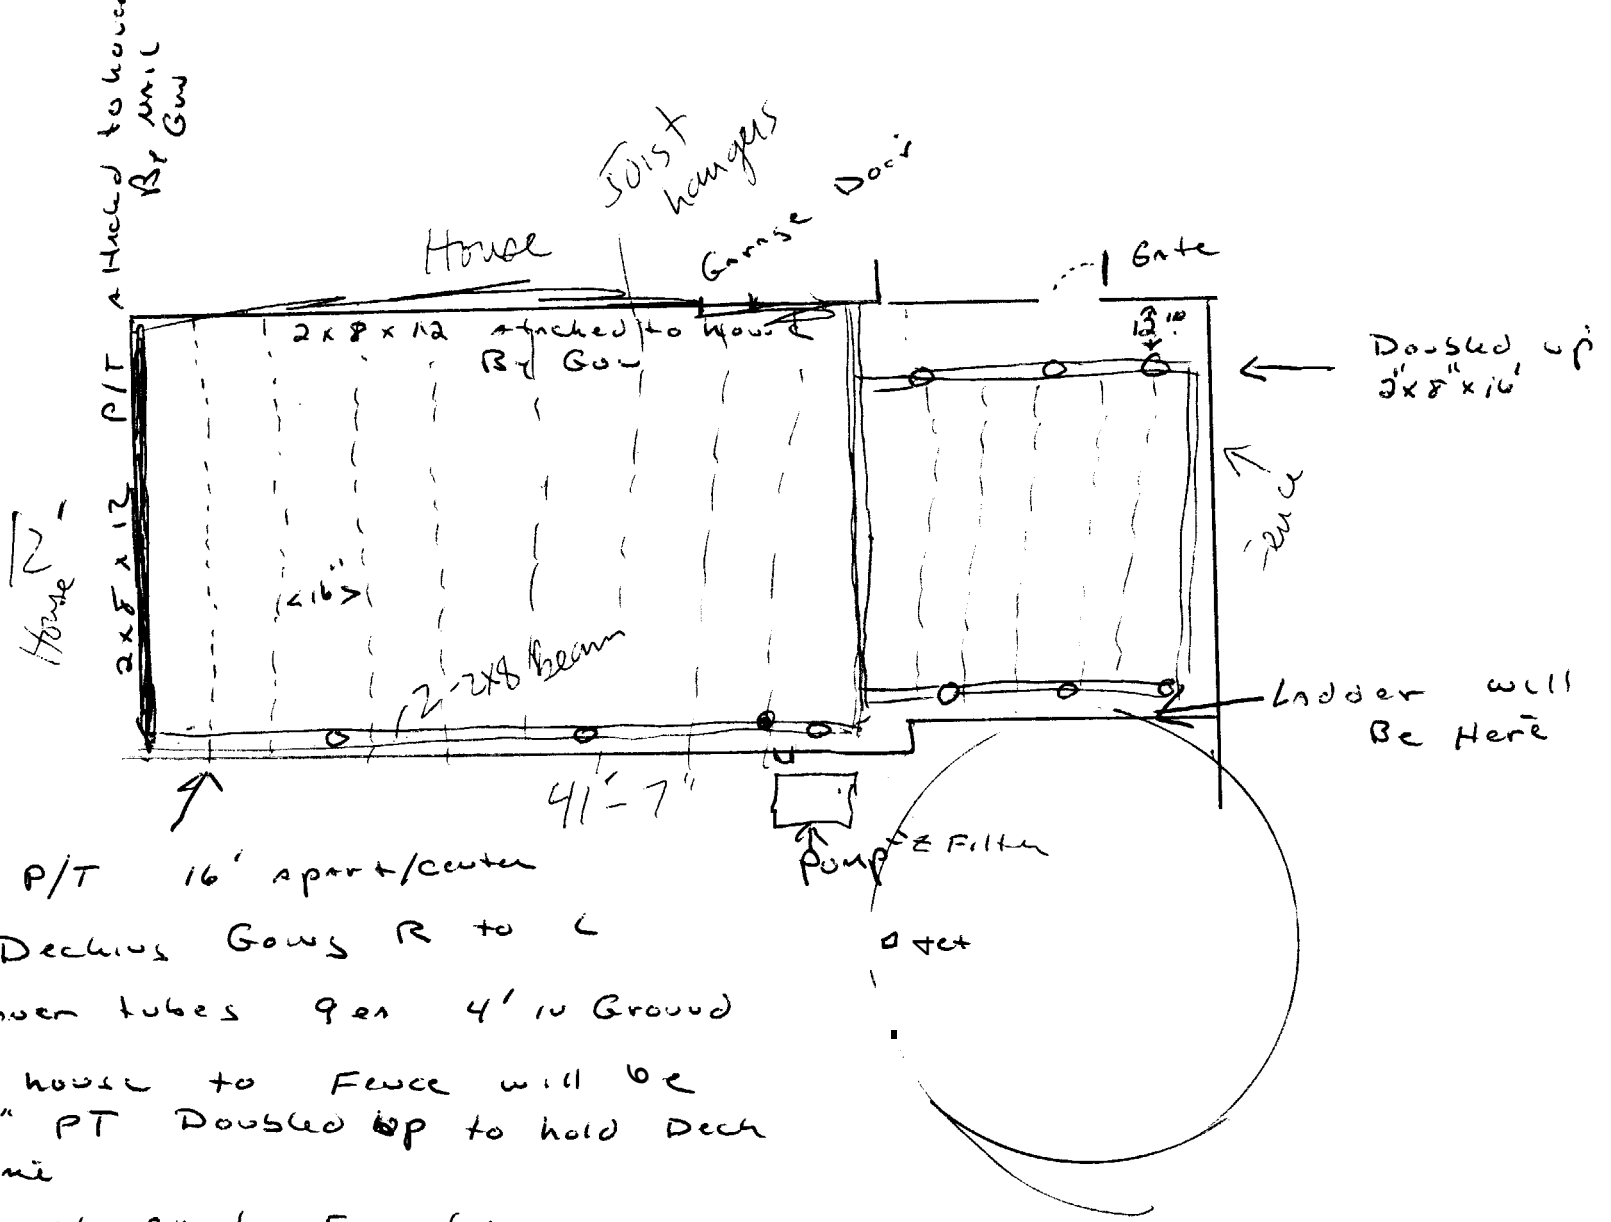 Attached to house
By nail
Gun
Joist
hangers
House
Garage Door
Gate
2 x 8 x 12 attached to house
By Gun
12"
Doubled up
2" x 8" x 16'
2 x 8 x 12 P/T
12'
House
<16">
2-2x8 Beam
Ladder will
Be Here
41'-7"
Pump & Filter
Jet
P/T 16' apart/center
Decking Going R to L
tubes 9 ea 4' in Ground
house to Fence will be
" PT Doubled up to hold Deck